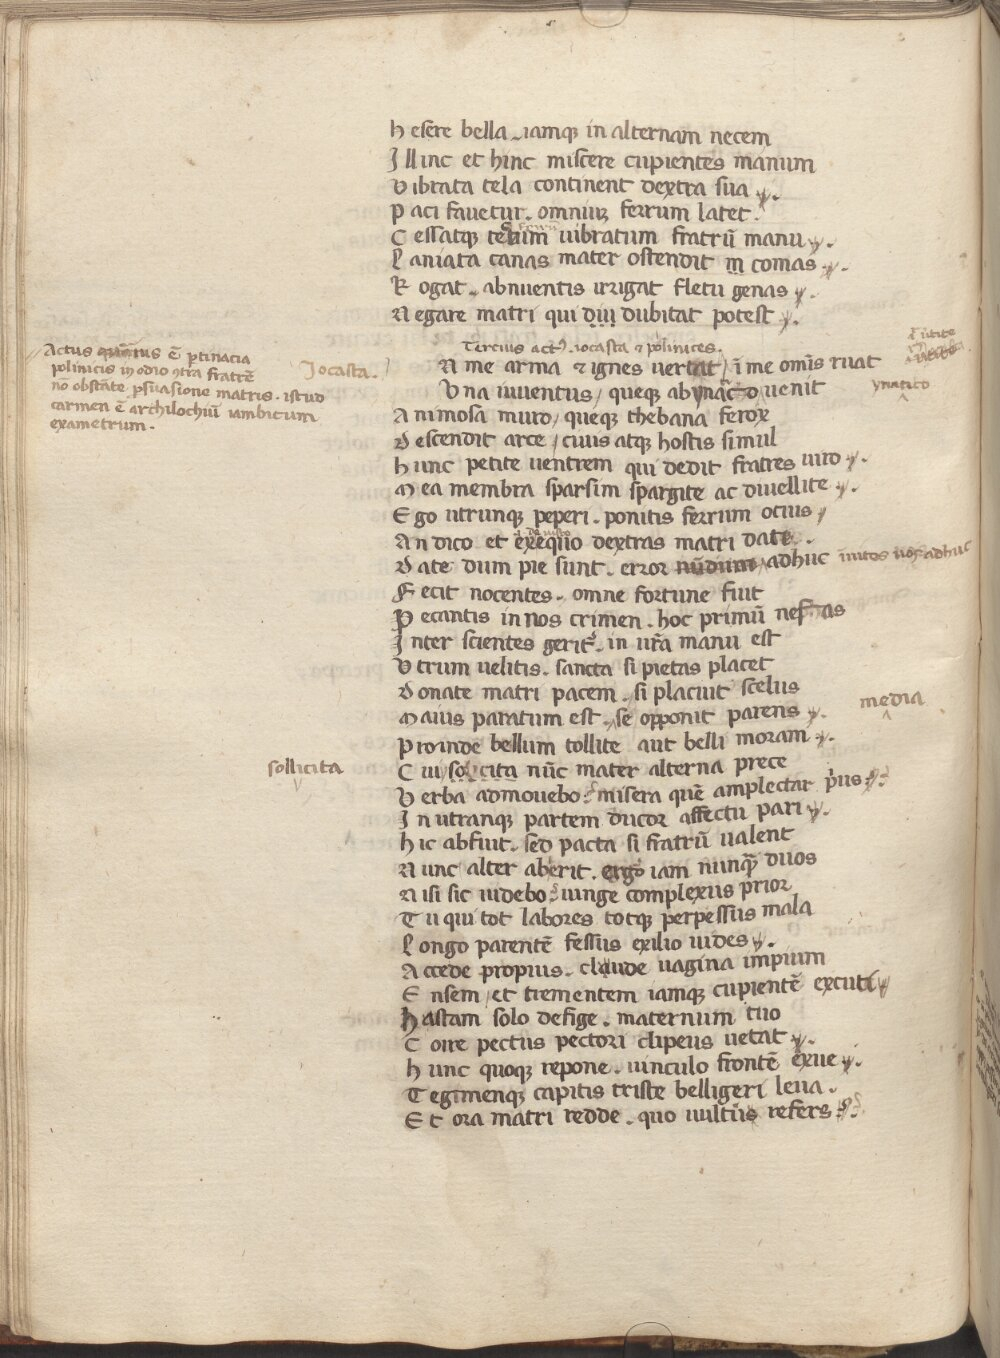 Hesere bella . iamqꝫ in alternam necem
Illinc et hinc miscere cupientes manum
Vibrata tela continent dextra sua
Paci fauetur . omniuꝫ ferrum latet .
Cessatqꝫ telum uibratum fratrū manu .
Laniata canas mater ostendit in comas .
Rogat . abnuentis irrigat fletu genas .
Negare matri qui diu dubitat potest .
Tercius actꝰ . iocasta & polinices .
Actus quartus ē ptinacia
polinicis in odio ɔtra fratrē
nō obstāte psuasione matris . istud
carmen ē archilochiū iambicum
exametrum .
Jocasta .
N me arma & ignes uertat / ī me om̄is ruat
Vna iuuentus / queqꝫ ab ynac̄o uenit
ynatico
Animosa muro / queqꝫ thebana ferox
Descendit arce / ciuis atqꝫ hostis simul
Hunc petite uentrem qui dedit fratres uiro .
Mea membra sparsim spargite ac diuellite .
Ego utrunqꝫ peperi . ponitis ferrum ocius
An dico et exequo dextras matri date .
Date dum pie sunt . error nūdum adhuc inuitos uos adhuc
Fecit nocentes . omne fortune fuit
Peccantis in nos crimen . hoc primū nefas
Inter scientes geritᷣ . in ur̄a manu est
Vtrum uelitis . sancta si pietas placet
Donate matri pacem . si placuit scelus
Maius paratum est . se opponit parens .
media
Proinde bellum tollite aut belli moram .
Cui solicita nūc mater alterna prece
sollicita
Verba admouebo : misera quē amplectar p̄us :
In utranqꝫ partem ducor affectu pari .
Hic abfuit . sed pacta si fratrū ualent
Nunc alter aberit . ergo iam nunqꝫ̄ duos
Nisi sic uidebo : iunge complexus prior
Tu qui tot labores totqꝫ perpessus mala
Longo parentē fessus exilio uides .
Accede propius . claude uagina impium
Ensem / et trementem iamqꝫ cupientē excuti
Hastam solo defige . maternum tuo
Coire pectus pectori clipeus uetat .
Hunc quoqꝫ repone . uinculo frontē exue .
Tegimenqꝫ capitis triste belligeri leua .
Et ora matri redde . quo uultus refers :